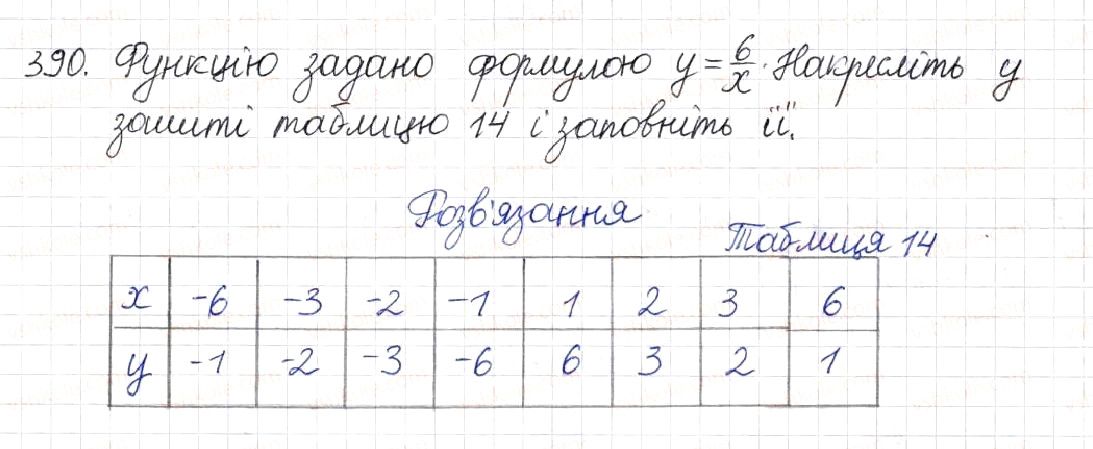 390. Функцію задано формулою y = 6/x. Накресліть у
зошиті таблицю 14 і заповніть її.
Розв'язання
Таблиця 14
x -6 -3 -2 -1 1 2 3 6
y -1 -2 -3 -6 6 3 2 1